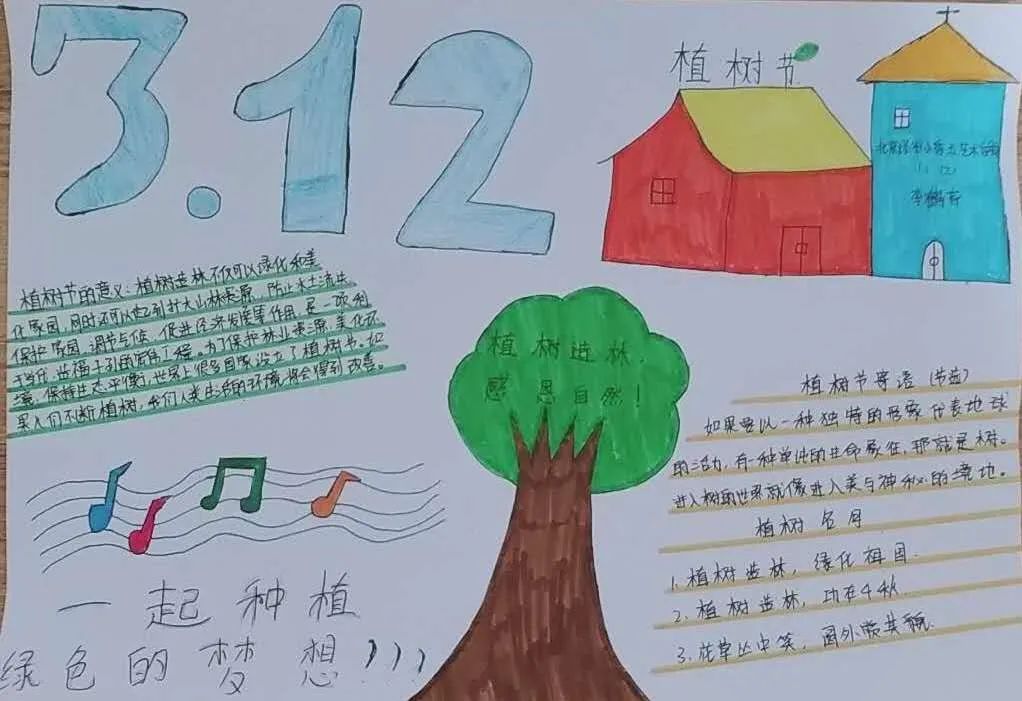 3.12
植树节
李
植树节的意义：植树造林不仅可以绿化和美
化家园，同时还可以起到扩大山林资源、防止水土流失、
保护家园、调节气候、促进经济发展等作用，是一项利
于当代、造福子孙的宏伟工程。为了保护林业资源，美化环
境，保持生态平衡，世界上很多国家设立了植树节。如
果人们不断植树，我们人类生活的环境将会得到改善。
植树造林，
感恩自然！
植树节寄语（节选）
如果要以一种独特的形象代表地球
的活动，有一种单纯的生命象征，那就是树。
进入树的世界就像进入美与神秘的境地。
植树
1.植树造林，绿化祖国.
2.植树造林，功在千秋
3.花草丛中笑，园外
一起种植
绿色的梦想